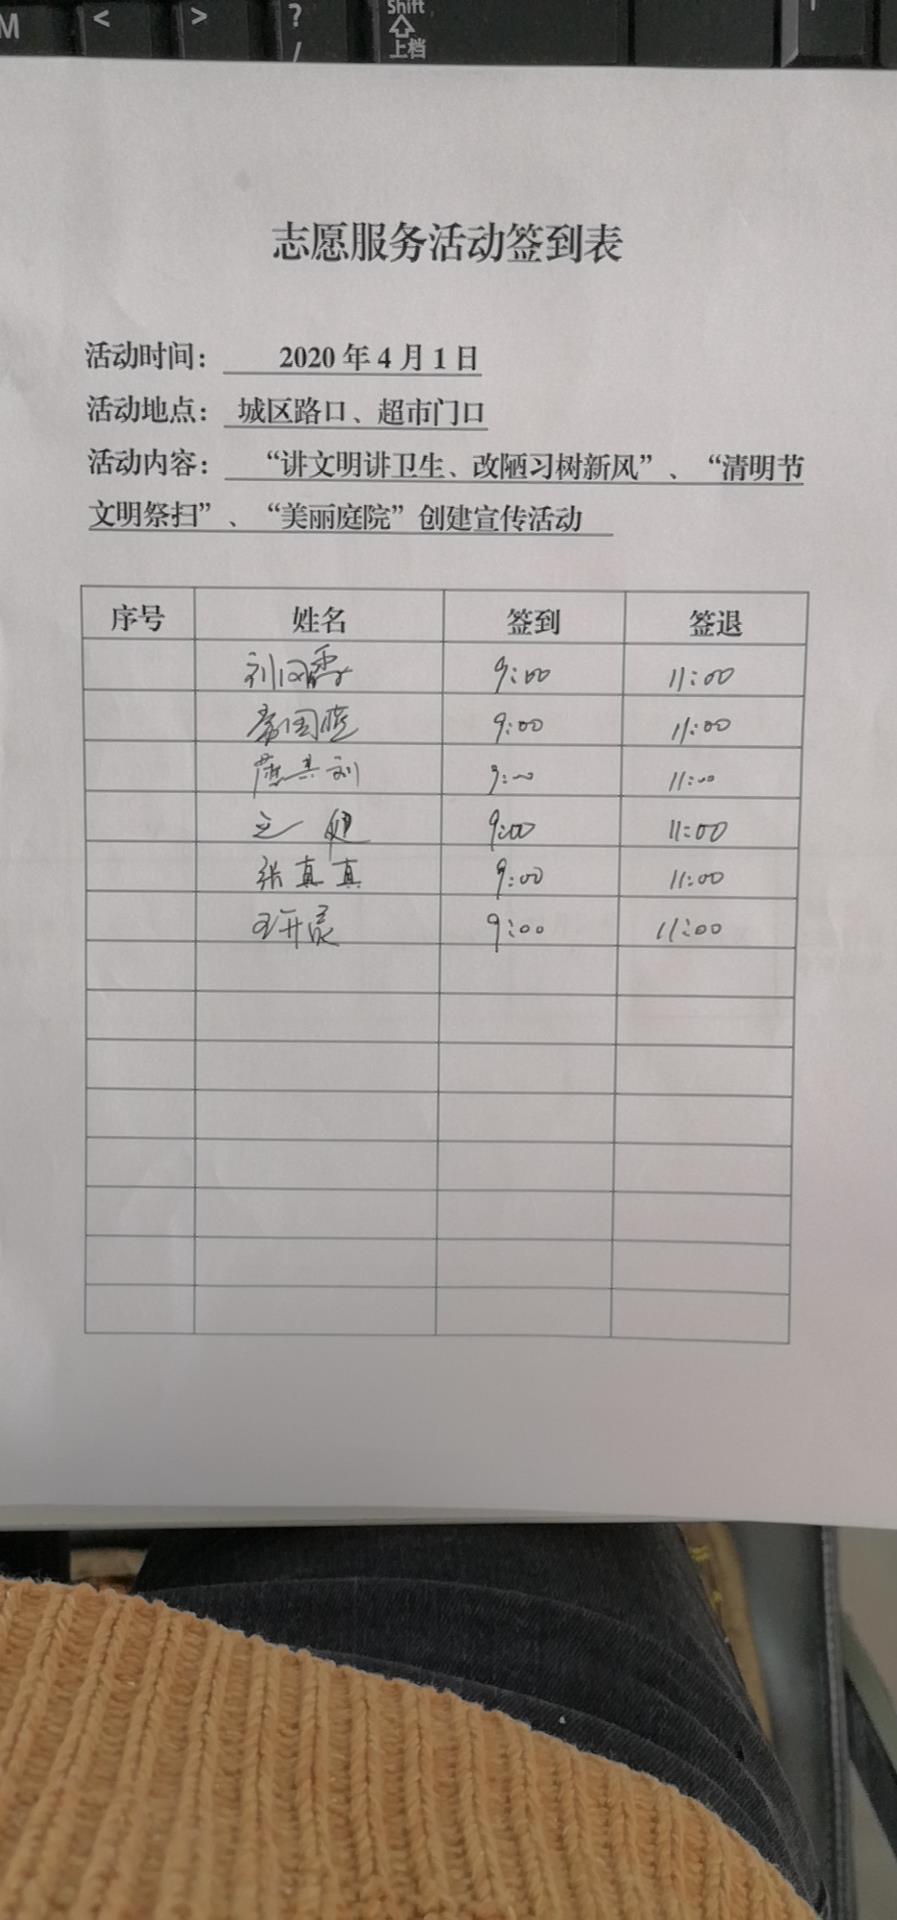 M < > ? / Shift
上档
志愿服务活动签到表
活动时间： 2020 年 4 月 1 日
活动地点： 城区路口、超市门口
活动内容： “讲文明讲卫生、改陋习树新风”、“清明节
文明祭扫”、“美丽庭院”创建宣传活动
序号 姓名 签到 签退
9:00 11:00
9:00 11:00
9:00 11:00
9:00 11:00
张真真 9:00 11:00
9:00 11:00